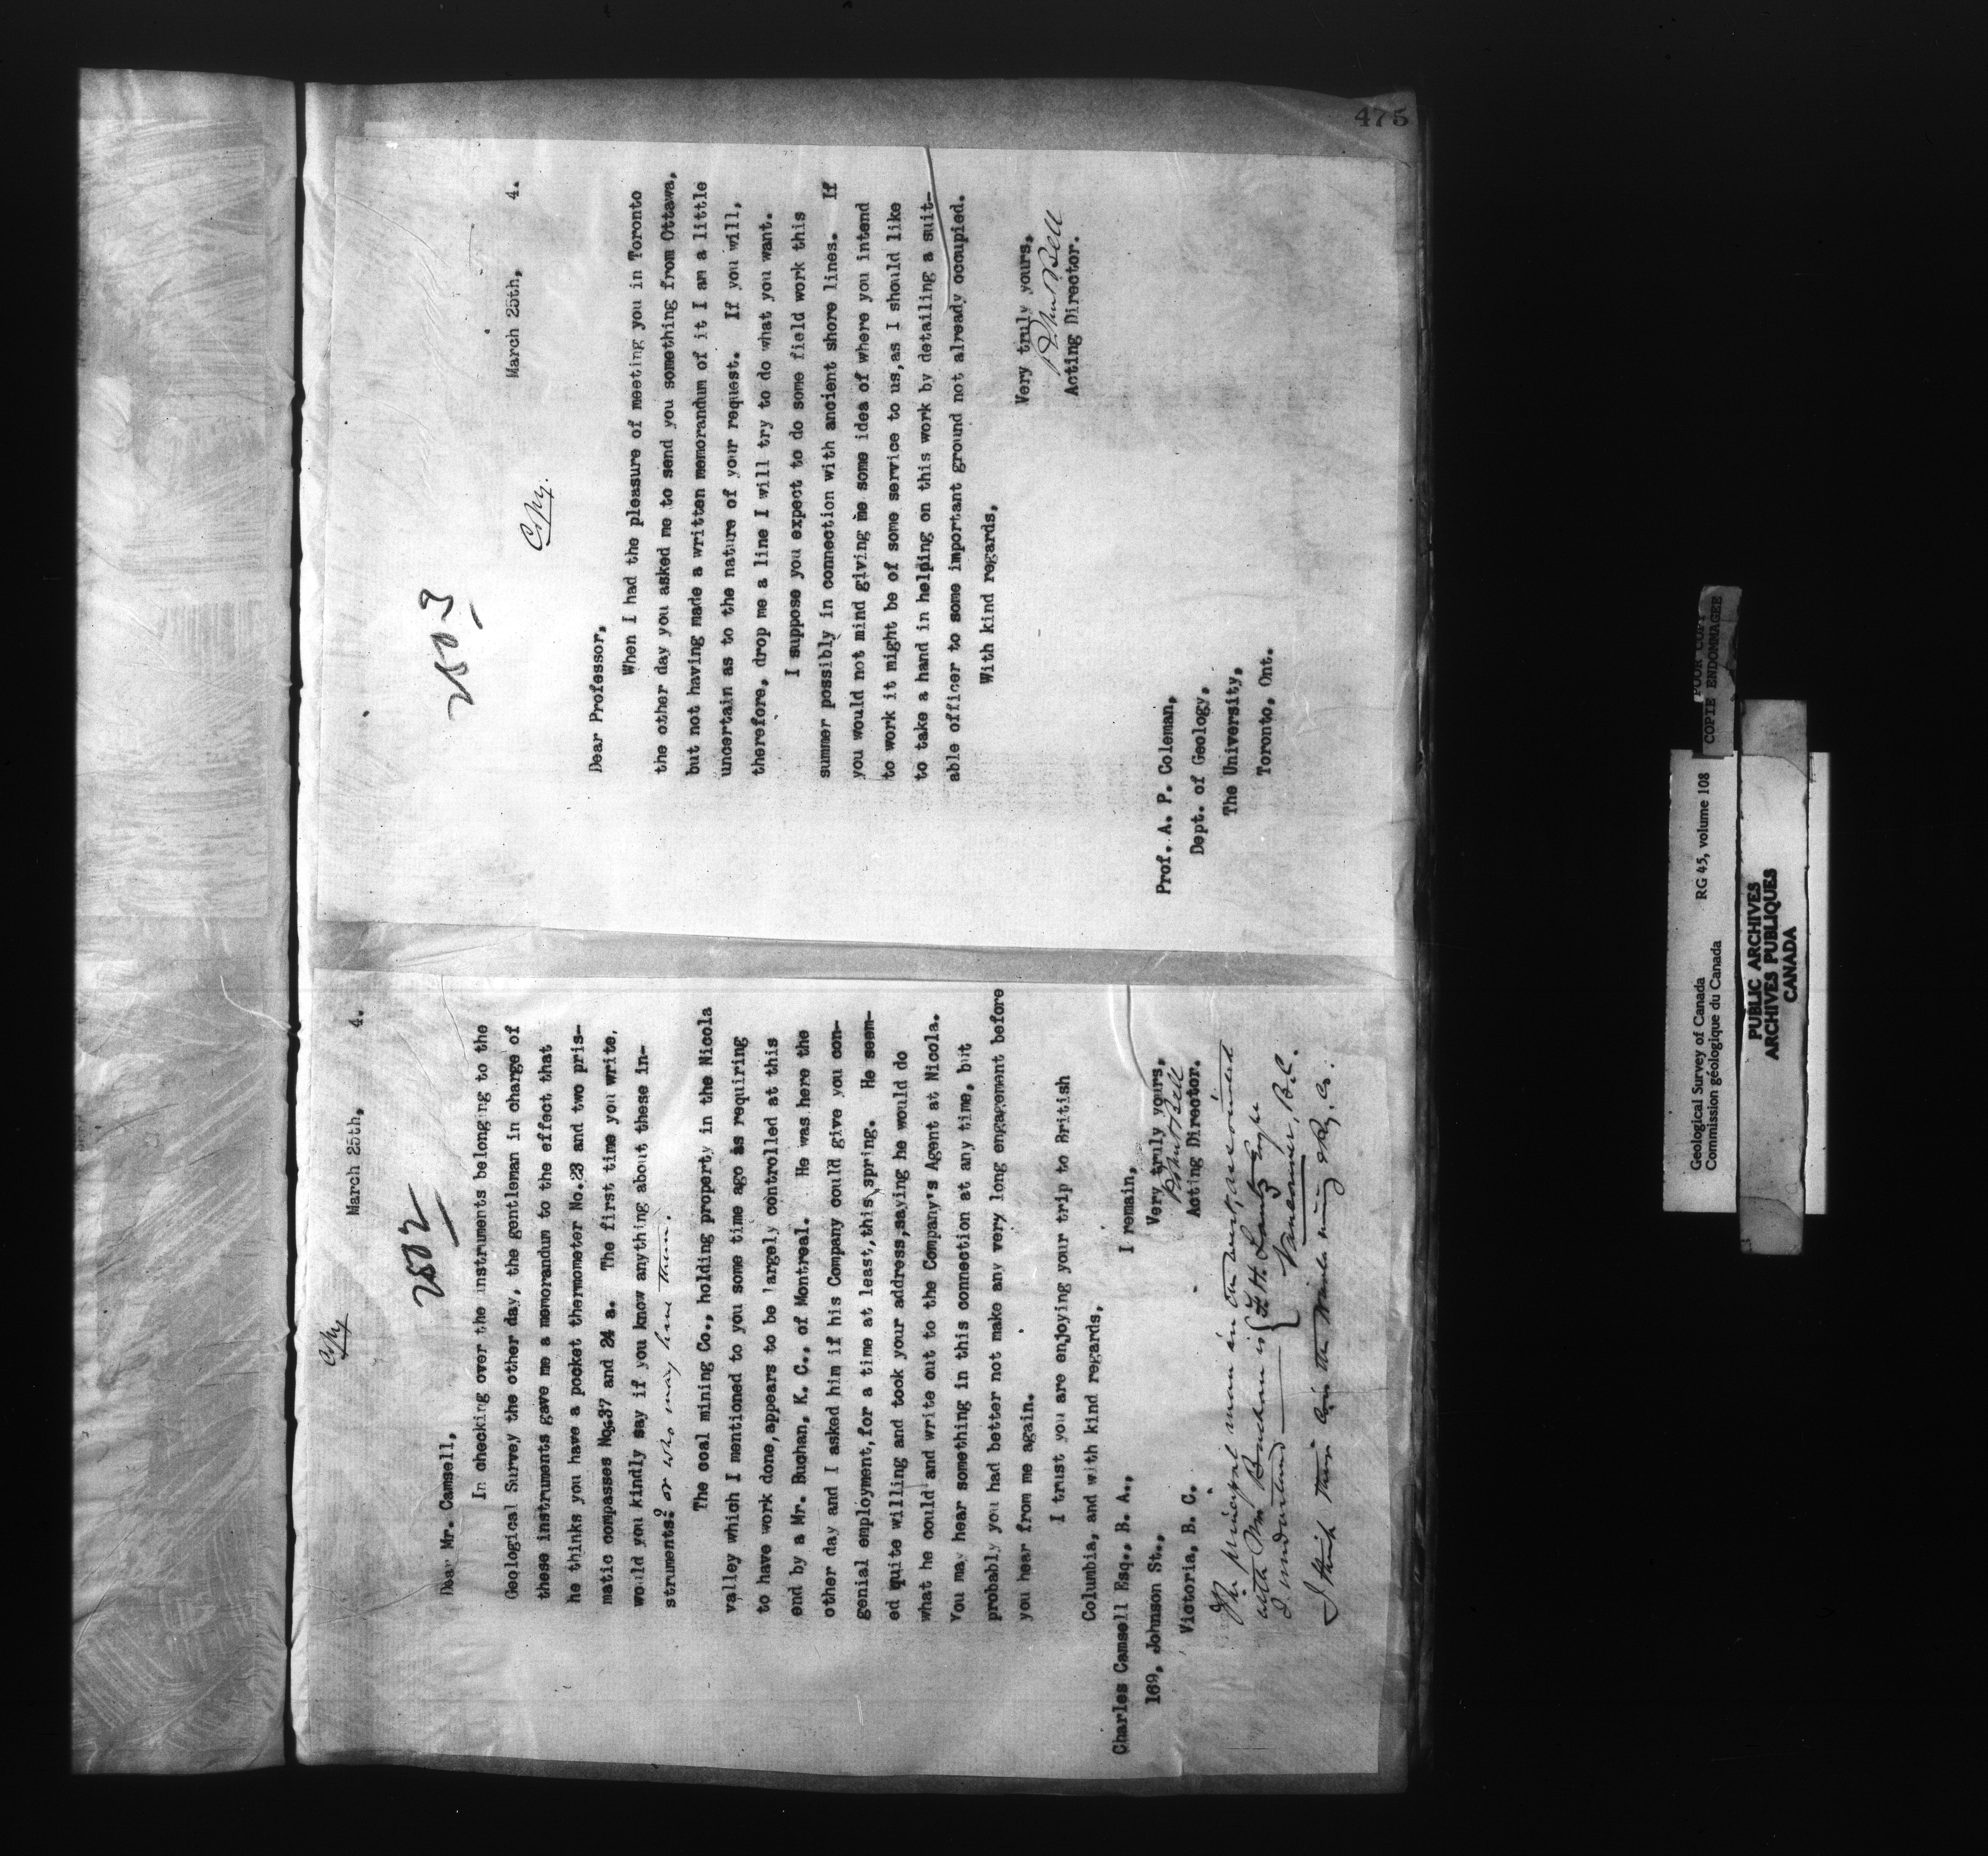 Copy
March 25th, 4.
2502
Dear Mr. Camsell,
In checking over the instruments belonging to the
Geological Survey the other day, the gentleman in charge of
these instruments gave me a memorandum to the effect that
he thinks you have a pocket thermometer No.23 and two pris-
matic compasses Nos.37 and 24 a. The first time you write,
would you kindly say if you know anything about these in-
struments? or who may have them.
The coal mining Co., holding property in the Nicola
valley which I mentioned to you some time ago as requiring
to have work done,appears to be largely controlled at this
end by a Mr. Buchan, K. C., of Montreal. He was here the
other day and I asked him if his Company could give you con-
genial employment,for a time at least,this spring. He seem-
ed quite willing and took your address,saying he would do
what he could and write out to the Company's Agent at Nicola.
You may hear something in this connection at any time, but
probably you had better not make any very long engagement before
you hear from me again.
I trust you are enjoying your trip to British
Columbia, and with kind regards,
I remain,
Very truly yours,
Robert Bell
Acting Director.
Charles Camsell Esq., B. A.,
169, Johnson St.,
Victoria, B. C.
The principal man in the west, associated
with Mr Buchan is F. H.
I understand Vancouver, B.C.
I think theirs is the Nicola mining & Ry. Co.
475
2503
March 25th, 4.
Copy.
Dear Professor,
When I had the pleasure of meeting you in Toronto
the other day you asked me to send you something from Ottawa,
but not having made a written memorandum of it I am a little
uncertain as to the nature of your request. If you will,
therefore, drop me a line I will try to do what you want.
I suppose you expect to do some field work this
summer possibly in connection with ancient shore lines. If
you would not mind giving me some idea of where you intend
to work it might be of some service to us,as I should like
to take a hand in helping on this work by detailing a suit-
able officer to some important ground not already occupied.
With kind regards,
Very truly yours,
Robert Bell
Acting Director.
Prof. A. P. Coleman,
Dept. of Geology,
The University,
Toronto, Ont.
Geological Survey of Canada RG 45, volume 108
Commission géologique du Canada
POOR COPY
COPIE ENDOMMAGEE
PUBLIC ARCHIVES
ARCHIVES PUBLIQUES
CANADA